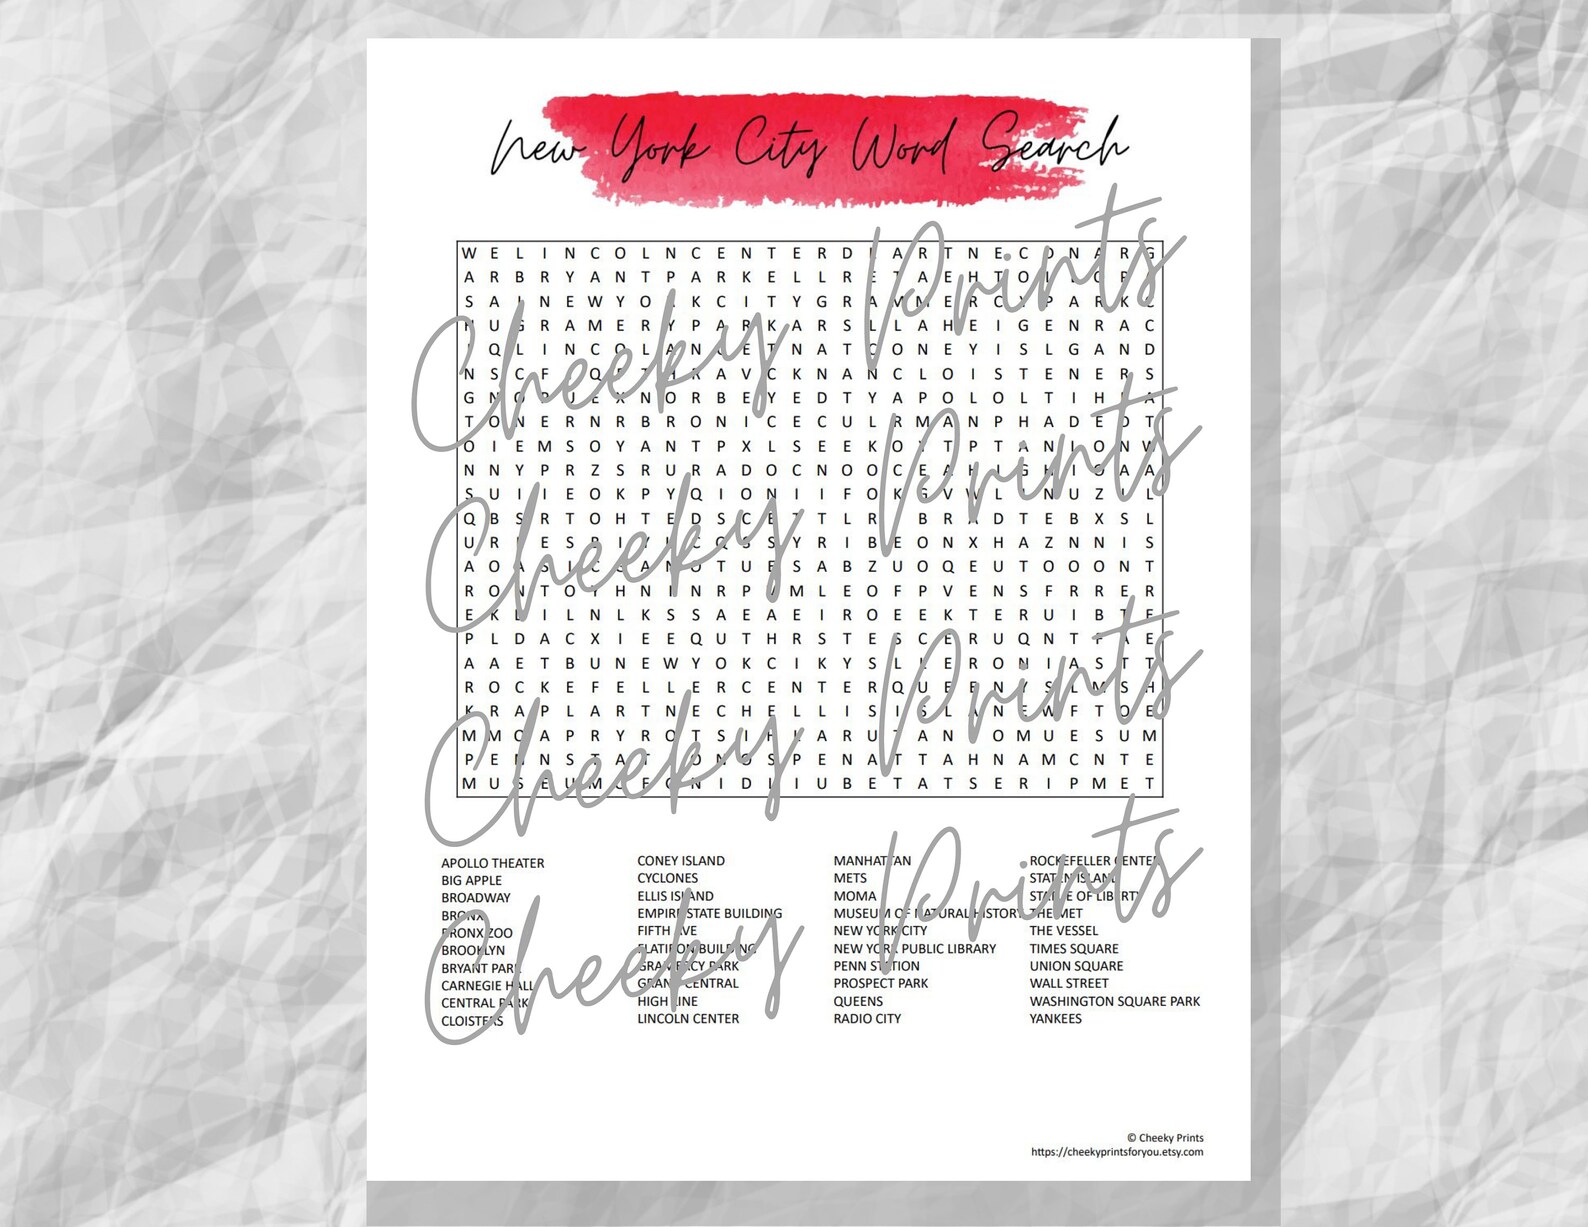 New York City Word Search
W E L I N C O L N C E N T E R D L A R T N E C D N A R G
A R B R Y A N T P A R K E L L R E T A E H T O L L O P A
S A I N E W Y O R K C I T Y G R A M M E R C Y P A R K C
H U G R A M E R Y P A R K A R S L L A H E I G E N R A C
I Q L I N C O L A N C E T N A T C O N E Y I S L G A N D
N S C F I Q E T H R A V C K N A N C L O I S T E N E R S
G N O R U E X N O R B E Y E D T Y A P O L O L T I H E A
T O N E R N R B R O N I C E C U L R M A N P H A D E D T
O I E M S O Y A N T P X L S E E K O Y T P T A N I O N W
N N Y P R Z S R U R A D O C N O O C E A H I G H I O A A
S U I I E O K P Y Q I O N I I F O K G V W L I N U Z L L
Q B S R T O H T E D S C E T T L R I B R A D T E B X S L
U R I E S P I Y L C Q S S Y R I B E O N X H A Z N N I S
A O A S I C S A N O T U E S A B Z U O Q E U T O O O N T
R O N T O Y H N I N R P A M L E O F P V E N S F R R E R
E K L I L N L K S S A E A E I R O E E K T E R U I B T E
P L D A C X I E E Q U T H R S T E S C E R U Q N T P A E
A A E T B U N E W Y O K C I K Y S L L E R O N I A S T T
R O C K E F E L L E R C E N T E R Q U E E N Y S L M S H
K R A P L A R T N E C H E L L I S I S L A N E W F T O E
M M O A P R Y R O T S I H L A R U T A N F O M U E S U M
P E N N S T A T I O N O S P E N A T T A H N A M C N T E
M U S E U M O F G N I D L I U B E T A T S E R I P M E T
APOLLO THEATER
BIG APPLE
BROADWAY
BRONX
BRONX ZOO
BROOKLYN
BRYANT PARK
CARNEGIE HALL
CENTRAL PARK
CLOISTERS
CONEY ISLAND
CYCLONES
ELLIS ISLAND
EMPIRE STATE BUILDING
FIFTH AVE
FLATIRON BUILDING
GRAMERCY PARK
GRAND CENTRAL
HIGH LINE
LINCOLN CENTER
MANHATTAN
METS
MOMA
MUSEUM OF NATURAL HISTORY
NEW YORK CITY
NEW YORK PUBLIC LIBRARY
PENN STATION
PROSPECT PARK
QUEENS
RADIO CITY
ROCKEFELLER CENTER
STATEN ISLAND
STATUE OF LIBERTY
THE MET
THE VESSEL
TIMES SQUARE
UNION SQUARE
WALL STREET
WASHINGTON SQUARE PARK
YANKEES
Cheeky Prints
Cheeky Prints
Cheeky Prints
Cheeky Prints
© Cheeky Prints
https://cheekyprintsforyou.etsy.com